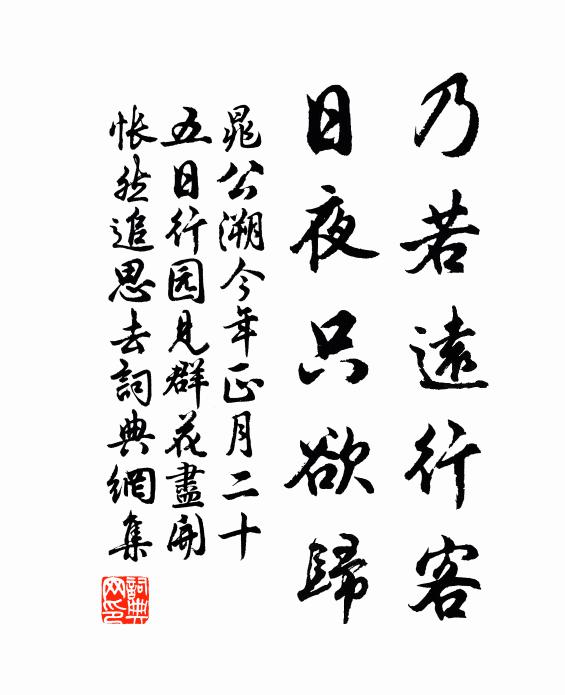 乃若遠行客
日夜只欲歸
晁公溯今年正月二十
五日行园見群花盡開
悵然追思去詞典網集
詞典
网印